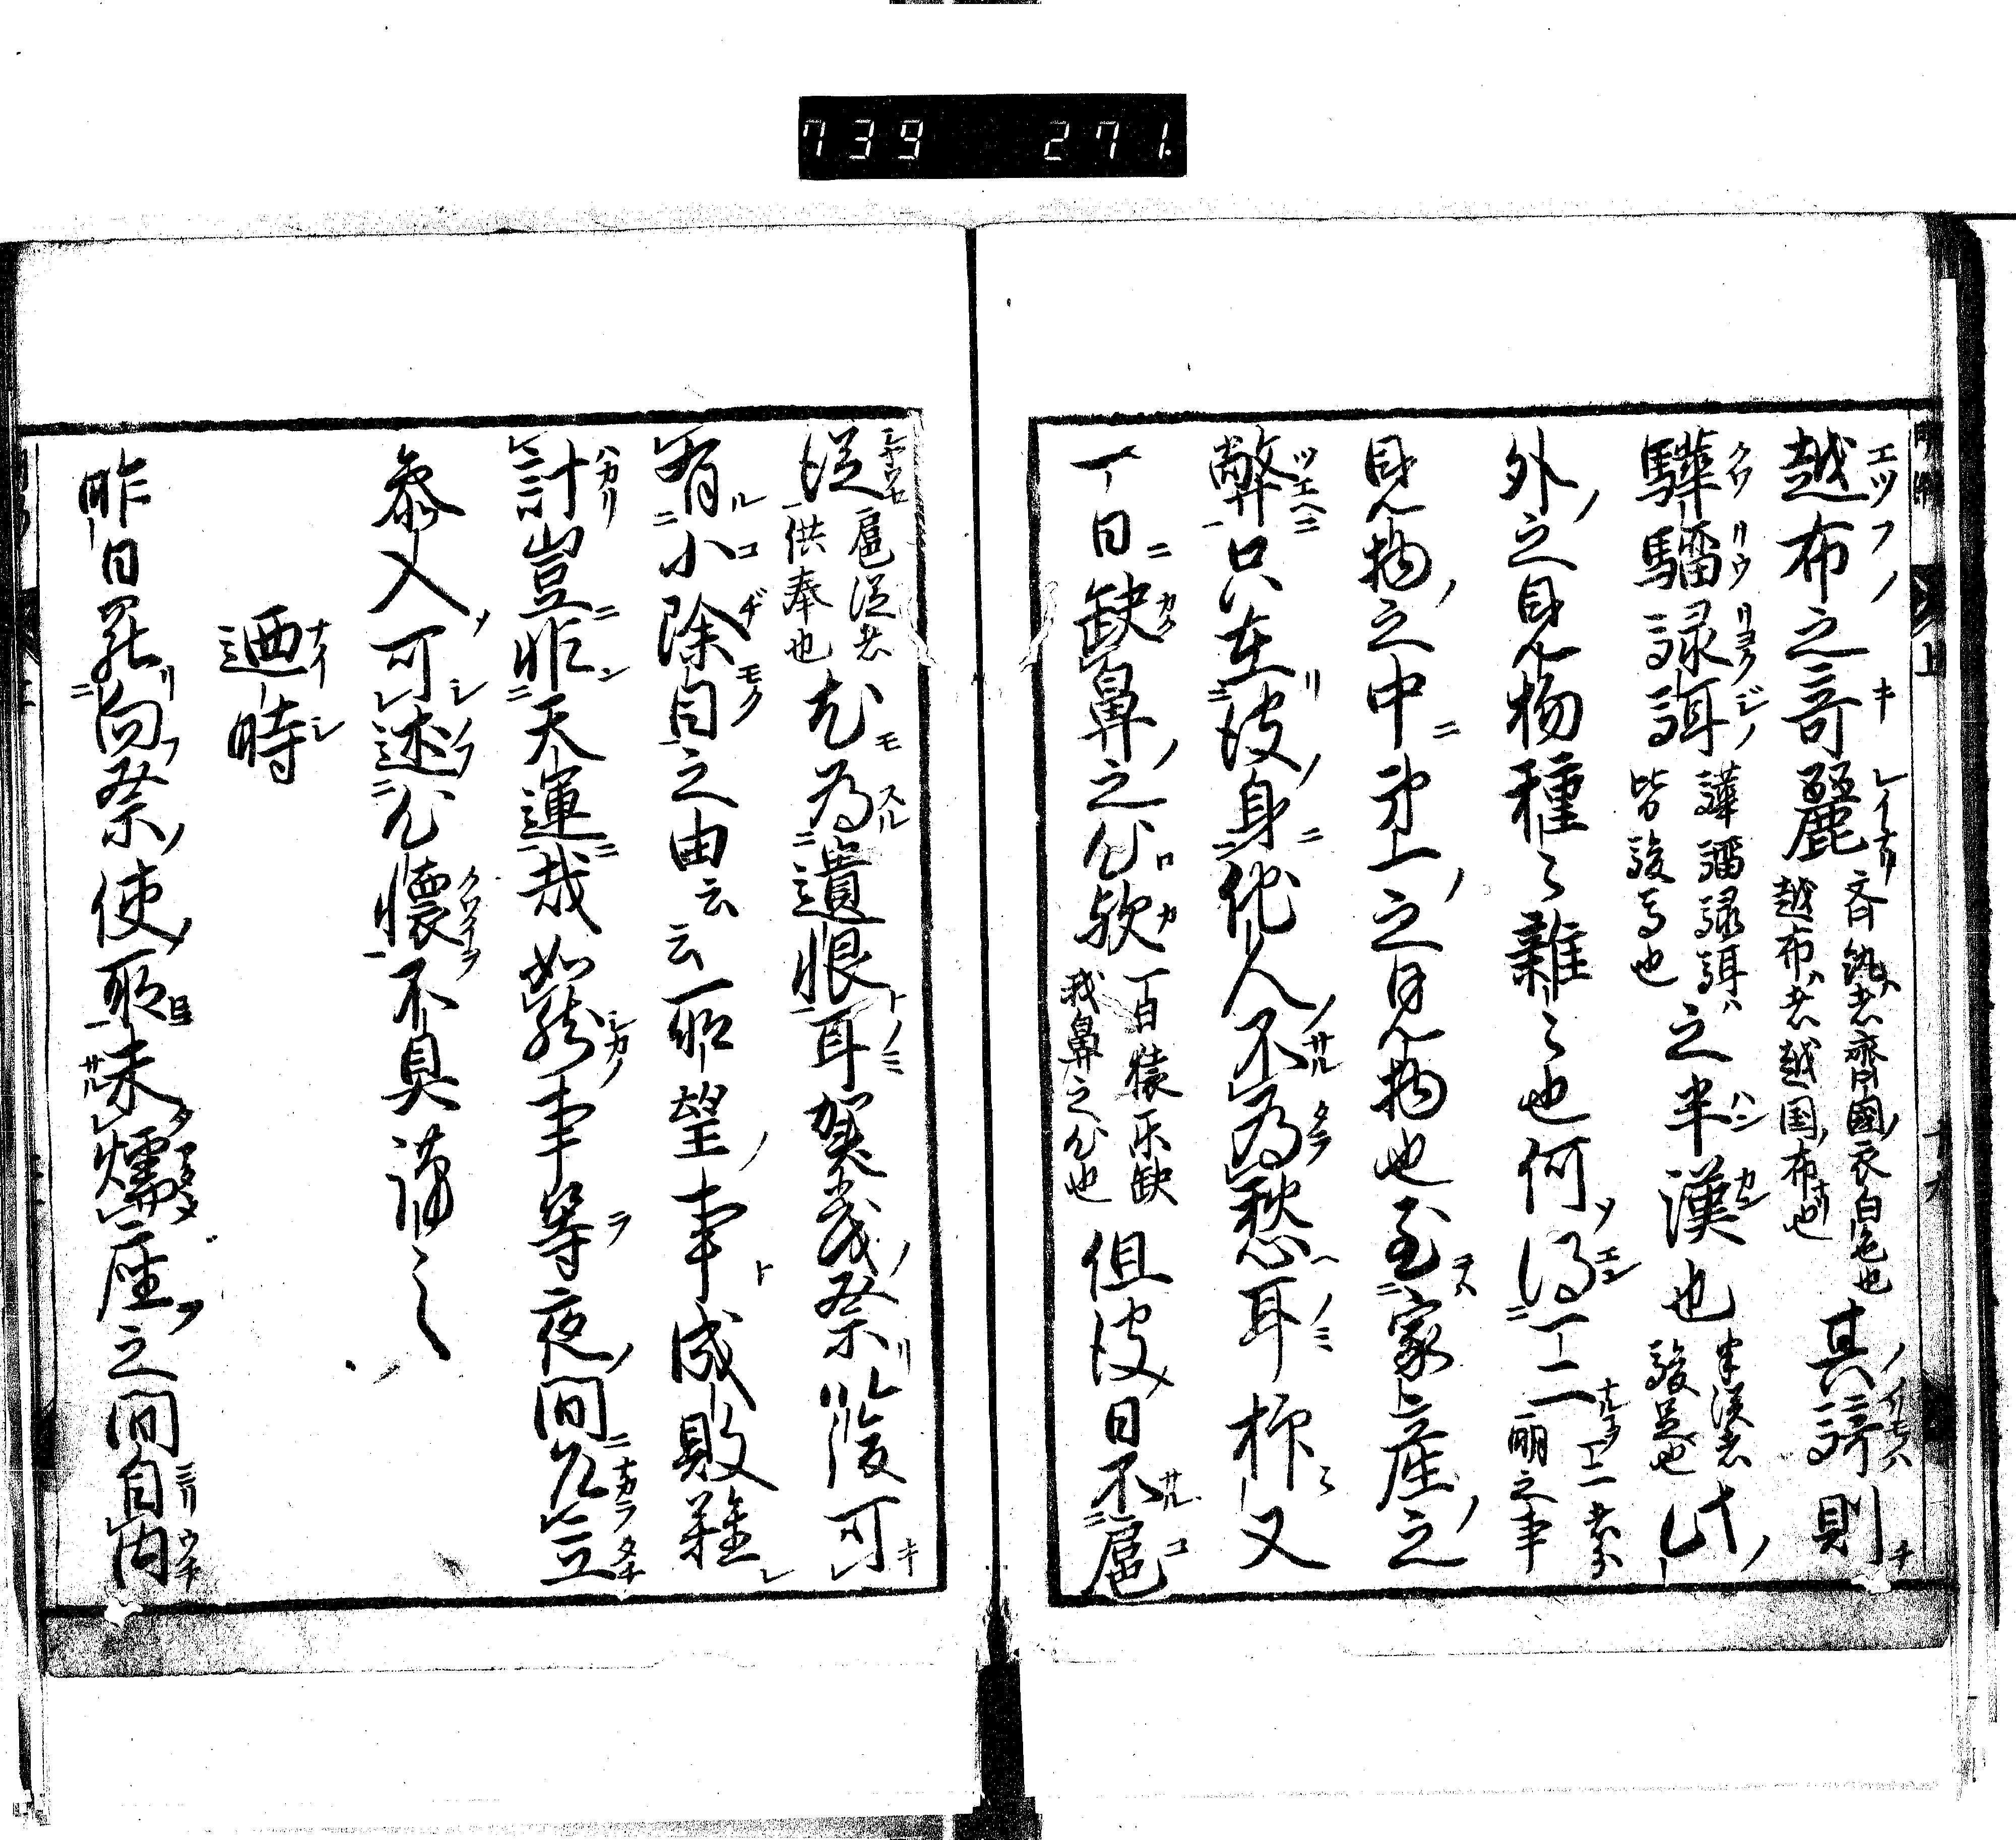 739 271
越布之奇麗 斉紈者齊國衣白色也
越布者越国布也 其騎則
驊騮騄駬 驊騮騄駬
皆駿馬也 之半漢也 半漢者
駿足也 此
外之見物種々雜々也何得一二 一二者
之事
見物之中第上之見物也至家産之
弊只在彼身他人不為愁耳抑又
一日缺鼻之分欤
我鼻之分也 但彼日不扈
從 扈従者
供奉也 尤為遺恨耳賀茂祭以後可
有小除目之由云云所望事成敗難
計豈非天運哉如然事等夜間公立
参入可述分懐不具謹言
廼時
昨日罷向祭使所未煖座之間自内